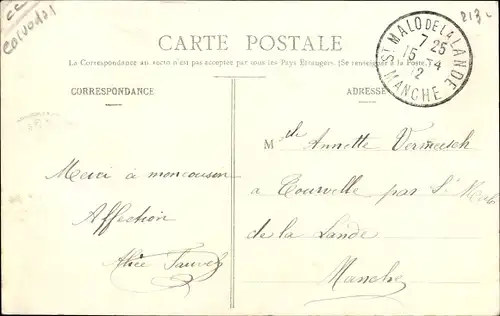 CC
Calvados
213
CARTE POSTALE
La Correspondance au recto n'est pas acceptée par tous les Pays Étrangers. (Se renseigner à la Poste.)
ST MALO DE LA LANDE
7 25
15 -4
12
MANCHE
CORRESPONDANCE
ADRESSE
Merci à moncousin
Affection
Alice
Mlle Annette Vermeersch
a Tourville par St Malo
de la Lande
Manche